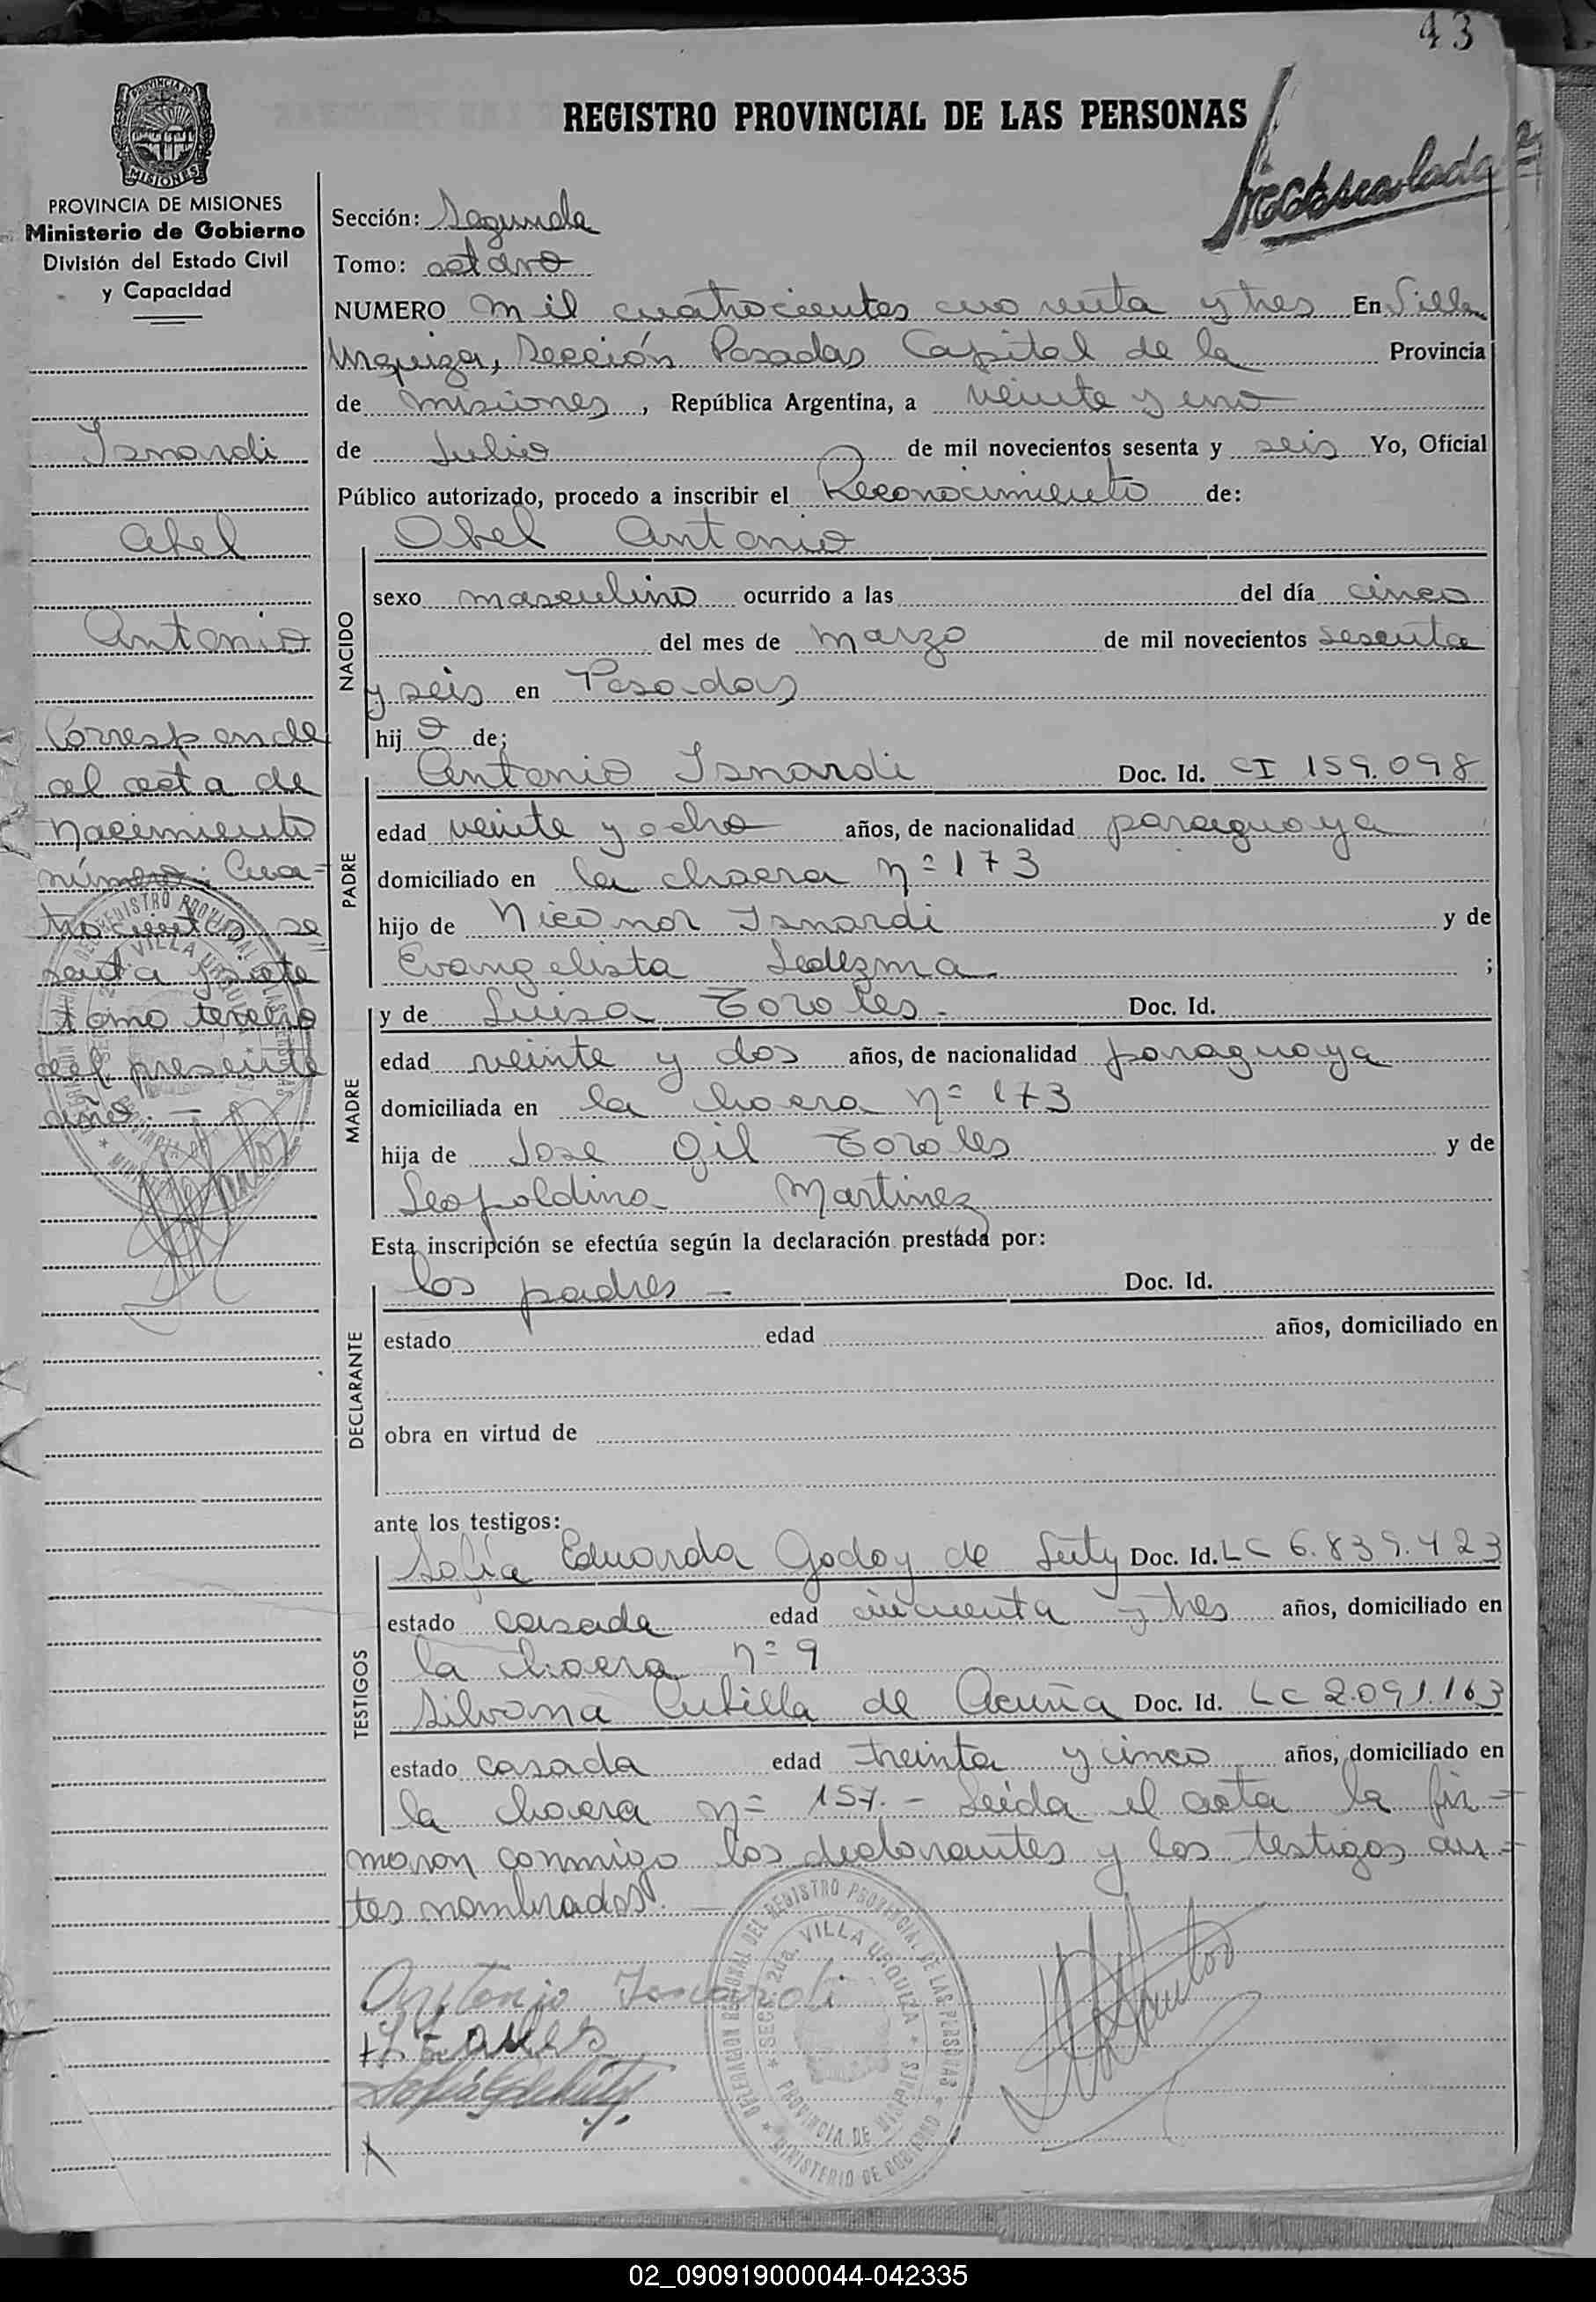 43
REGISTRO PROVINCIAL DE LAS PERSONAS
PROVINCIA DE MISIONES
Ministerio de Gobierno
División del Estado Civil
y Capacidad
Isnardi
Abel
Antonio
Corresponde
al acta de
Nacimiento
número: Cua=
trocientos se
senta y siete
tomo tercero
del presente
año. —
Sección: Segunda
Tomo: octavo
NUMERO mil cuatrocientos cuarenta y tres En Villa
Urquiza, Sección Posadas Capital de la Provincia
de misiones, República Argentina, a veinte y uno
de Julio de mil novecientos sesenta y seis Yo, Oficial
Público autorizado, procedo a inscribir el Reconocimiento de:
NACIDO
Abel Antonio
sexo masculino ocurrido a las del día cinco
del mes de marzo de mil novecientos sesenta
y seis en Posadas
hijo de;
PADRE
Antonio Isnardi Doc. Id. CI 159.098
edad veinte y ocho años, de nacionalidad paraguaya
domiciliado en la chacra nº 173
hijo de Nicanor Isnardi y de
Evangelista Ledezma ;
MADRE
y de Luisa Torales - Doc. Id.
edad veinte y dos años, de nacionalidad paraguaya
domiciliada en la chacra nº 173
hija de Jose Gil Torales y de
Leopoldina Martinez
Esta inscripción se efectúa según la declaración prestada por:
DECLARANTE
los padres - Doc. Id.
estado edad años, domiciliado en
obra en virtud de
ante los testigos:
TESTIGOS
Sofía Eduarda Godoy de Doc. Id. LC 6.839.423
estado casada edad cincuenta y tres años, domiciliado en
la chacra nº 9
Silvana Cubilla de Acuña Doc. Id. LC 2.091.163
estado casada edad treinta y cinco años, domiciliado en
la chacra nº 157. - Leída el acta la fir=
maron conmigo los declarantes y los testigos an=
tes nombrados. —
Antonio Isnardi
DELEGACION REGIONAL DEL REGISTRO PROVINCIAL DE LAS PERSONAS
SECC. 2da. VILLA URQUIZA
PROVINCIA DE MISIONES
MINISTERIO DE GOBIERNO
02_090919000044-042335